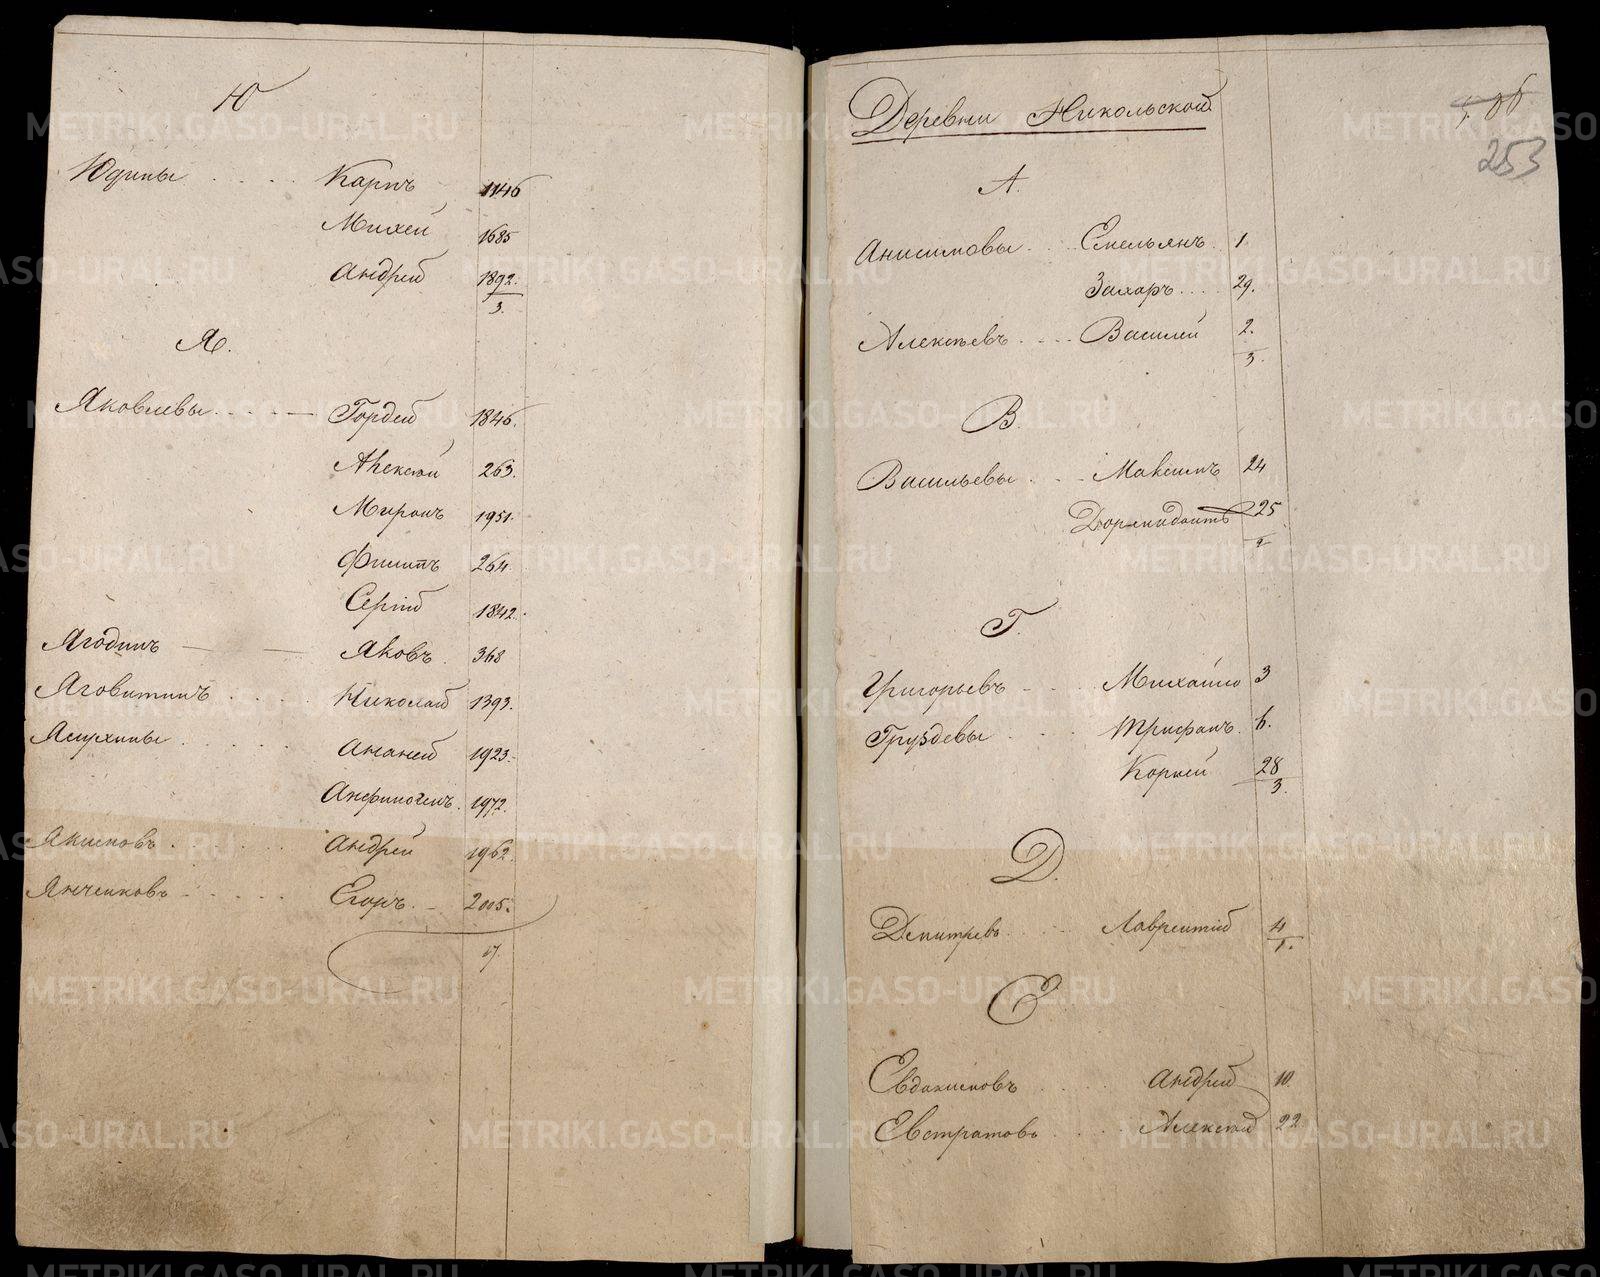 Ю
Юдины .... Карпъ 1146
Михей 1685
Андрей 1892.
3.
Я.
Яковлевы .... Гордей 1846.
Алексѣй 263.
Миронъ 1951.
Филипъ 264.
Сергій 1842.
Ягодинъ Яковъ 368
Яговитинъ .... Николай 1393.
Ананей 1923.
Анфиногенъ. 1972.
Якимовъ .... Андрей 1962.
Янченковъ .... Егоръ. 2005.
17.
Деревни Никольской
253
А.
Анисимовы .... Емельянъ. 1.
Захаръ .... 29.
Алексѣевъ .... Василей 2.
3.
В.
Васильевы .... Максимъ 24
Дормидонтъ 25
2
Г.
Григорьевъ .... Михайло 3
Груздевы .... Трифонъ.
Корней 28
3.
Д.
Дмитревъ .... Лаврентій 4
1.
Е
Евдокимовъ .... Андрей 10.
Евстратовъ .... Алексѣй 22
METRIKI.GASO-URAL.RU